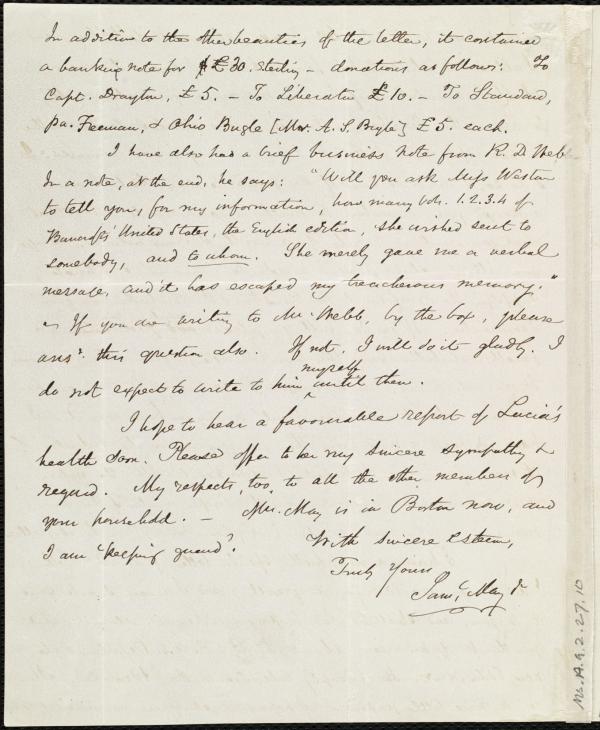 In addition to the other beauties of the letter, it contained
a banking note for £30. Sterling – donations as follows: To
Capt. Drayton, £5. – To Liberator £10. – To Standard,
Pa. Freeman, & Ohio Bugle [Mor. A. S. Bugle] £5. each.
I have also had a brief business note from R. D. Webb
In a note, at the end, he says: "Will you ask Miss Weston
to tell you, for my information, how many vols. 1.2.3.4 of
Bancroft's United States, the English edition, she wished sent to
somebody, and to whom. She merely gave me a verbal
message, and it has escaped my treacherous memory."
– If you are writing to Mr. Webb, by the box, please
ansr. this question also. If not, I will do it gladly. I
do not expect to write to him myself until then.
I hope to hear a favourable report of Lucia's
health soon. Please offer to her my sincere sympathy &
regard. My respects, too, to all the other members of
your household. – Mrs. May is in Boston now, and
I am 'keeping guard'. With sincere esteem,
Truly Yours
Saml. May Jr
Ms. A. 9. 2. 27. 10